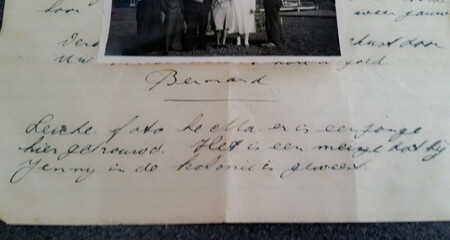 hoor
weer gauw
Verd
door
Uw
Bernard
Leuke foto he Ma. er is een jonge
hier getrouwd. Het is een meisje dat bij
Jenny in de kolonie is geweest.